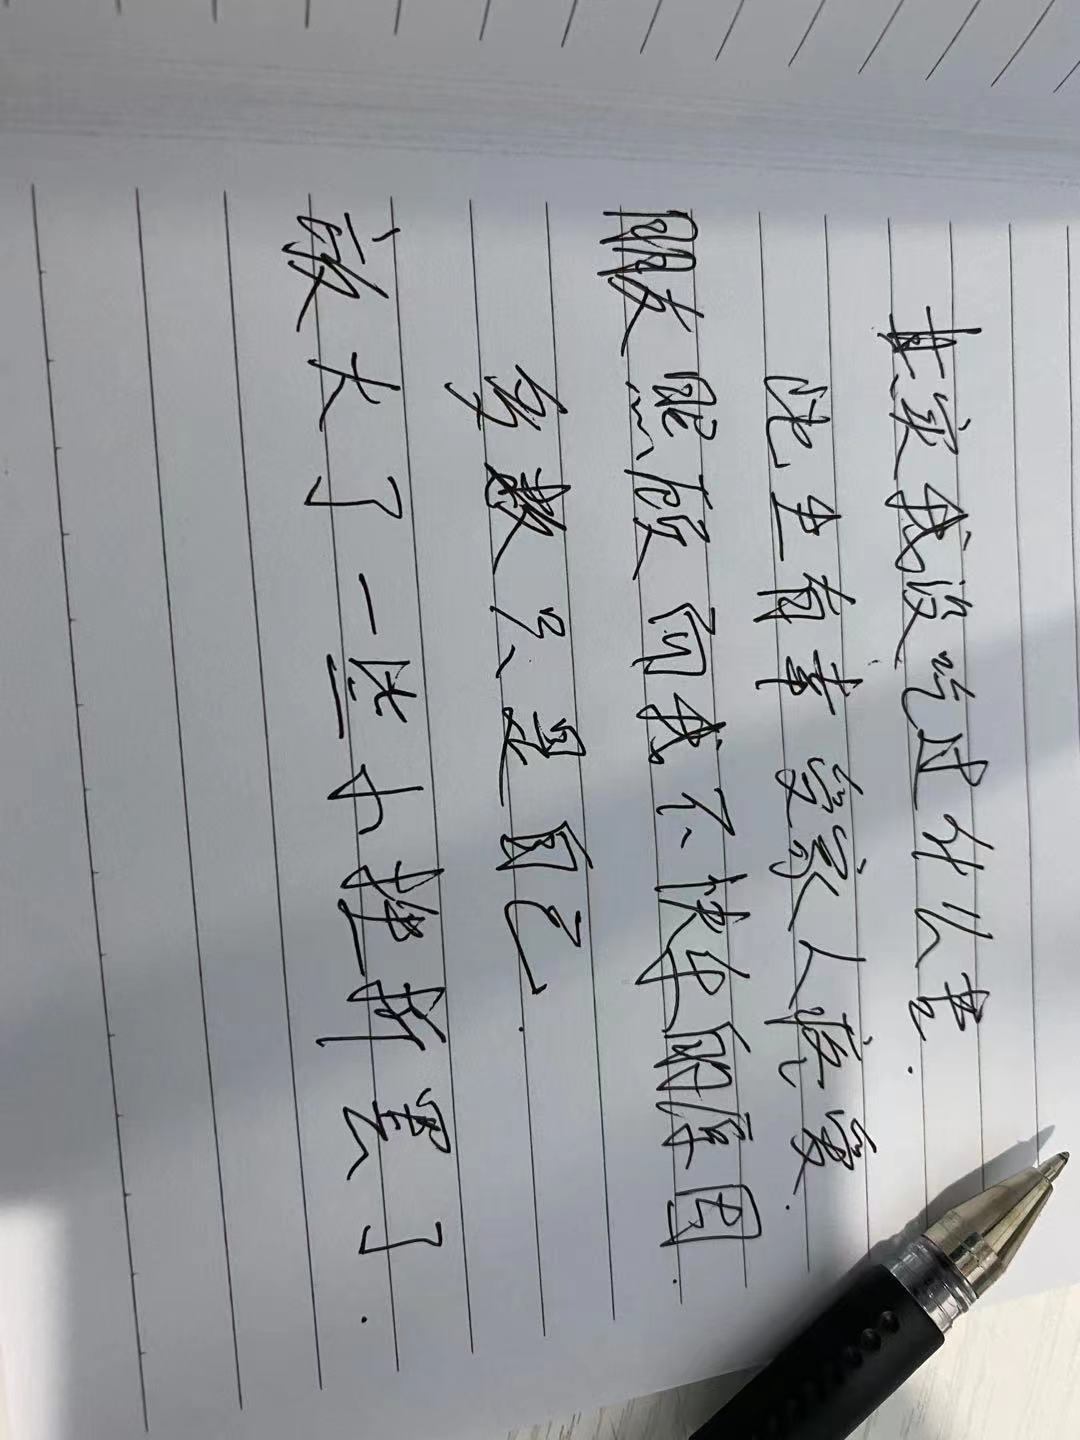 其实我没吃过什么苦.
此生有幸 受家人疼爱.
朋友照顾 而我不快乐的原因.
多数只是自己.
放大了一些小挫折罢了.